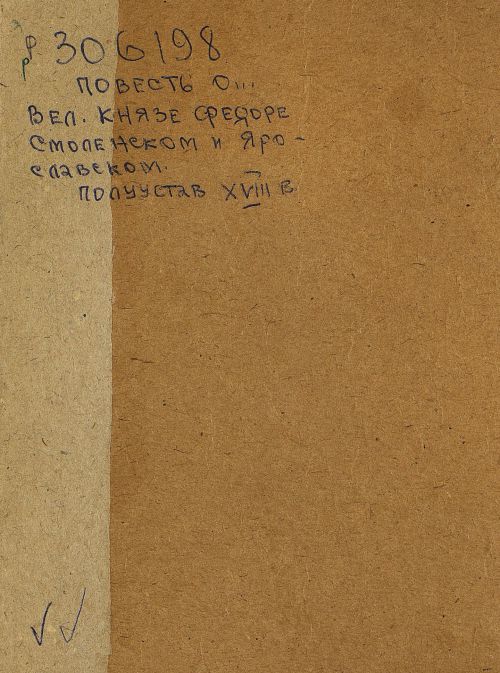 р 306198
ПОВЕСТЬ О...
ВЕЛ. КНЯЗЕ ФЕДОРЕ
СМОЛЕНСКОМ И ЯРО-
СЛАВСКОМ.
ПОЛУУСТАВ XVIII В